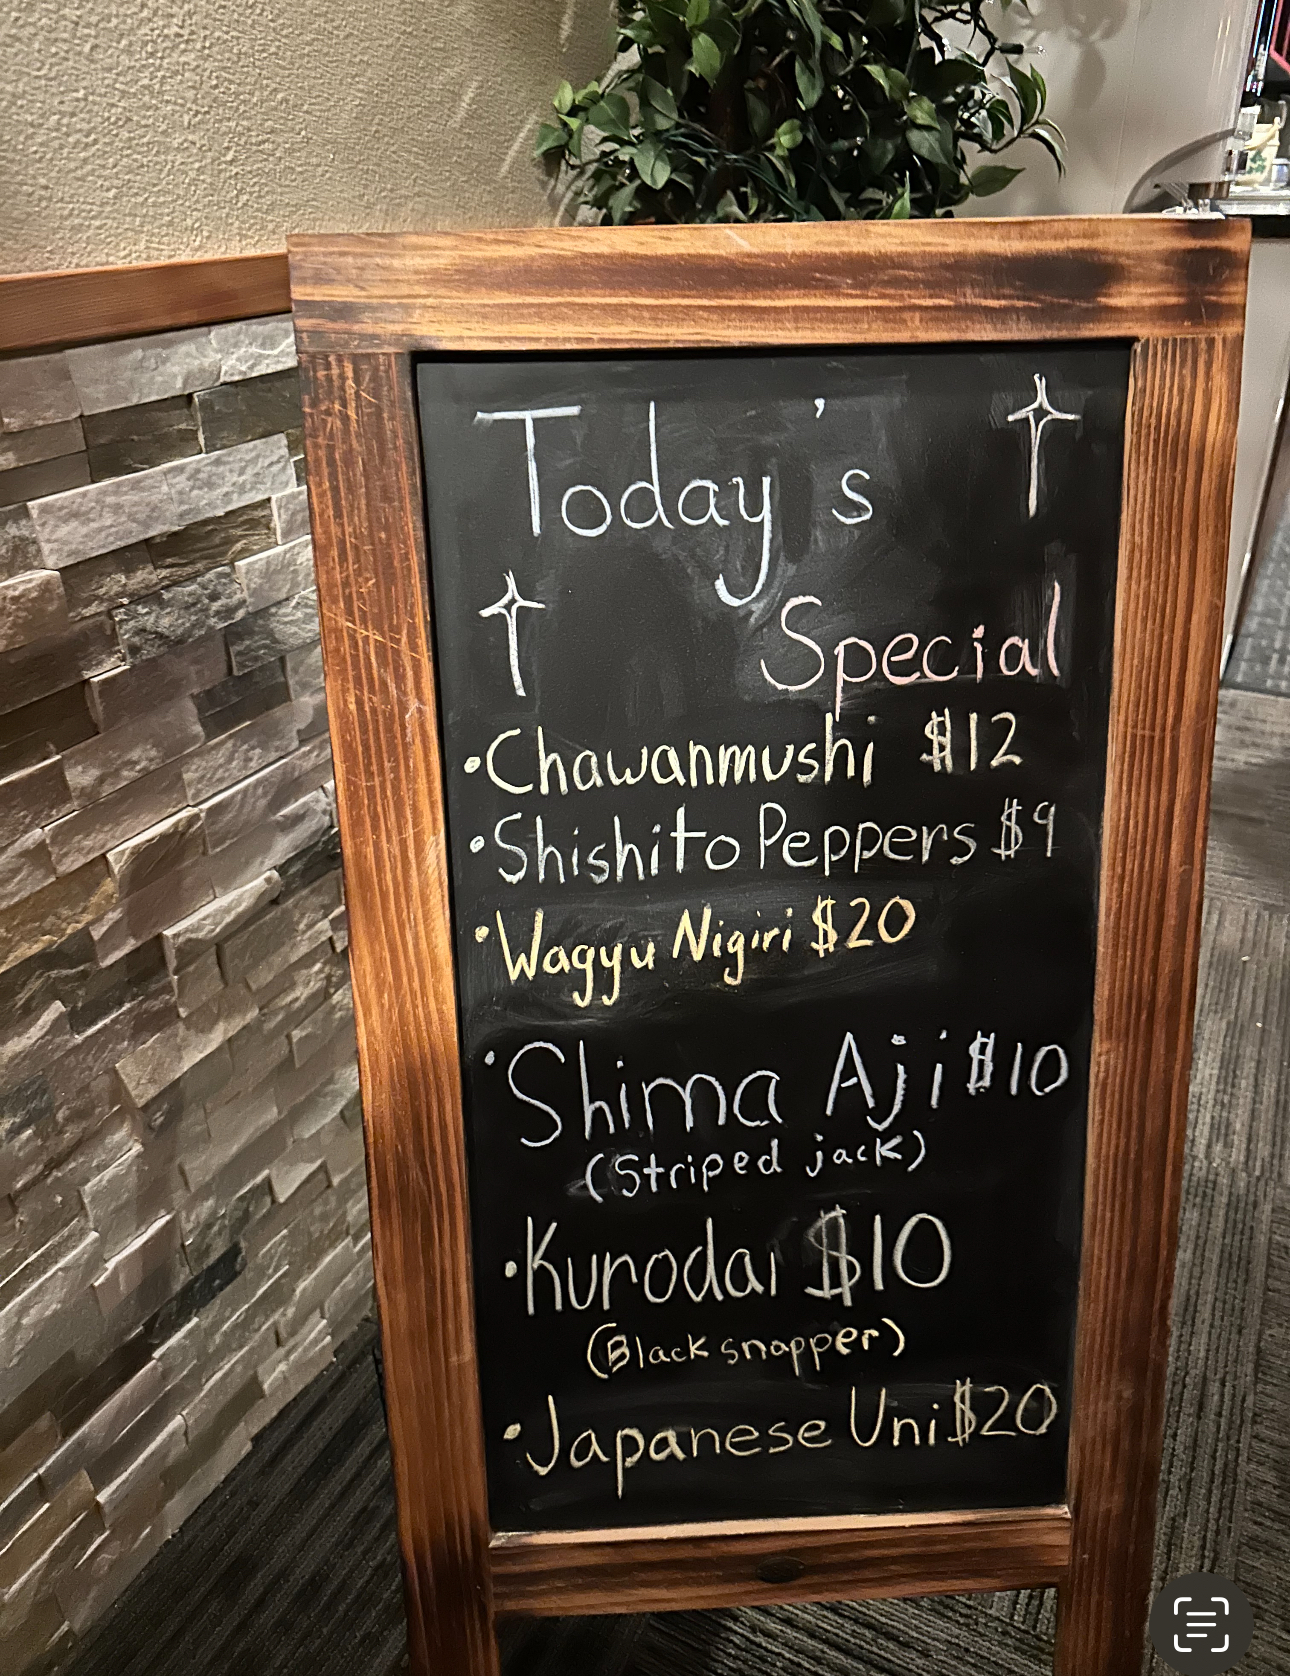 Today's
Special
•Chawanmushi $12
•Shishito Peppers $9
•Wagyu Nigiri $20
•Shima Aji $10
(Striped jack)
•Kurodai $10
(Black snapper)
•Japanese Uni $20